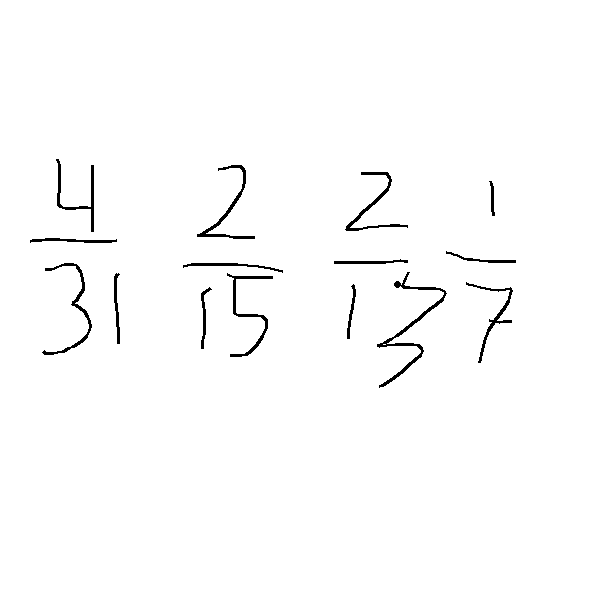 4/31 2/15 2/13 1/7